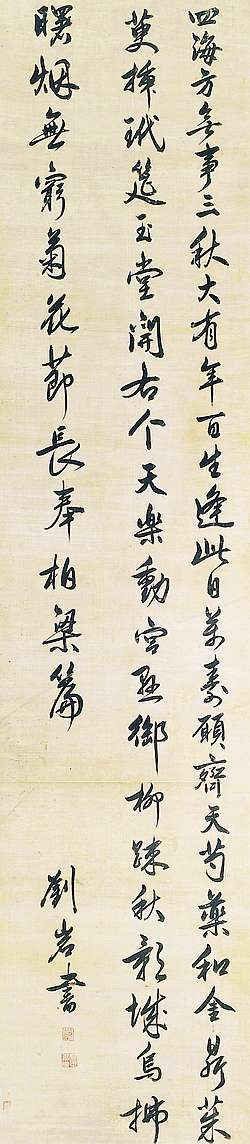 四海方無事三秋大有年百生逢此日萬壽願齊天芍藥和金鼎茱
萸插玳筵玉堂開右个天樂動宮懸御柳疎秋影城烏拂
曙烟無窮菊花節長奉柏梁篇
劉岩書